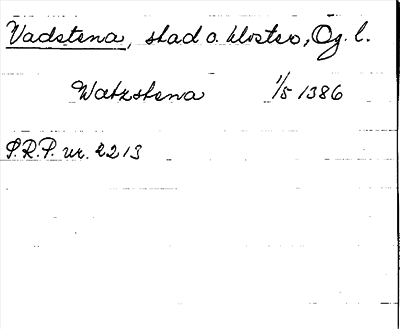 Vadstena, stad o. kloster, Ög. l.
Watzstena 1/5 1386
S.R.P. nr. 2213